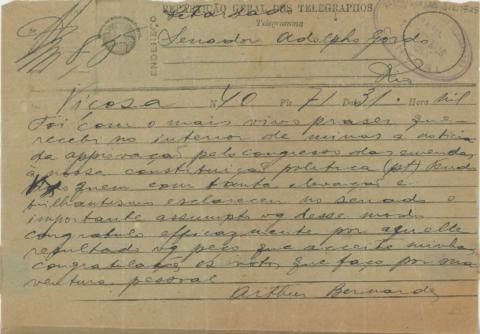 REPARTIÇÃO GERAL DOS TELEGRAPHOS
Telegramma
ENDEREÇO
Senador Adolpho Gordo
Rio
Viçosa N 40 Pls 71 Data 31 Hora
Foi com o mais vivo praser que
recebi no interior de minas a noticia
da approvação pelo congresso das emendas
a nossa constituição politica (pt)
quem com tanta elevação e
brilhantismo esclareceu no senado o
importante assumpto vg desse modo
congratulo efficazmente por aquelle
resultado vg peço que acceite minhas
congratulações votos que faço por sua
ventura pessoal
Arthur Bernardes